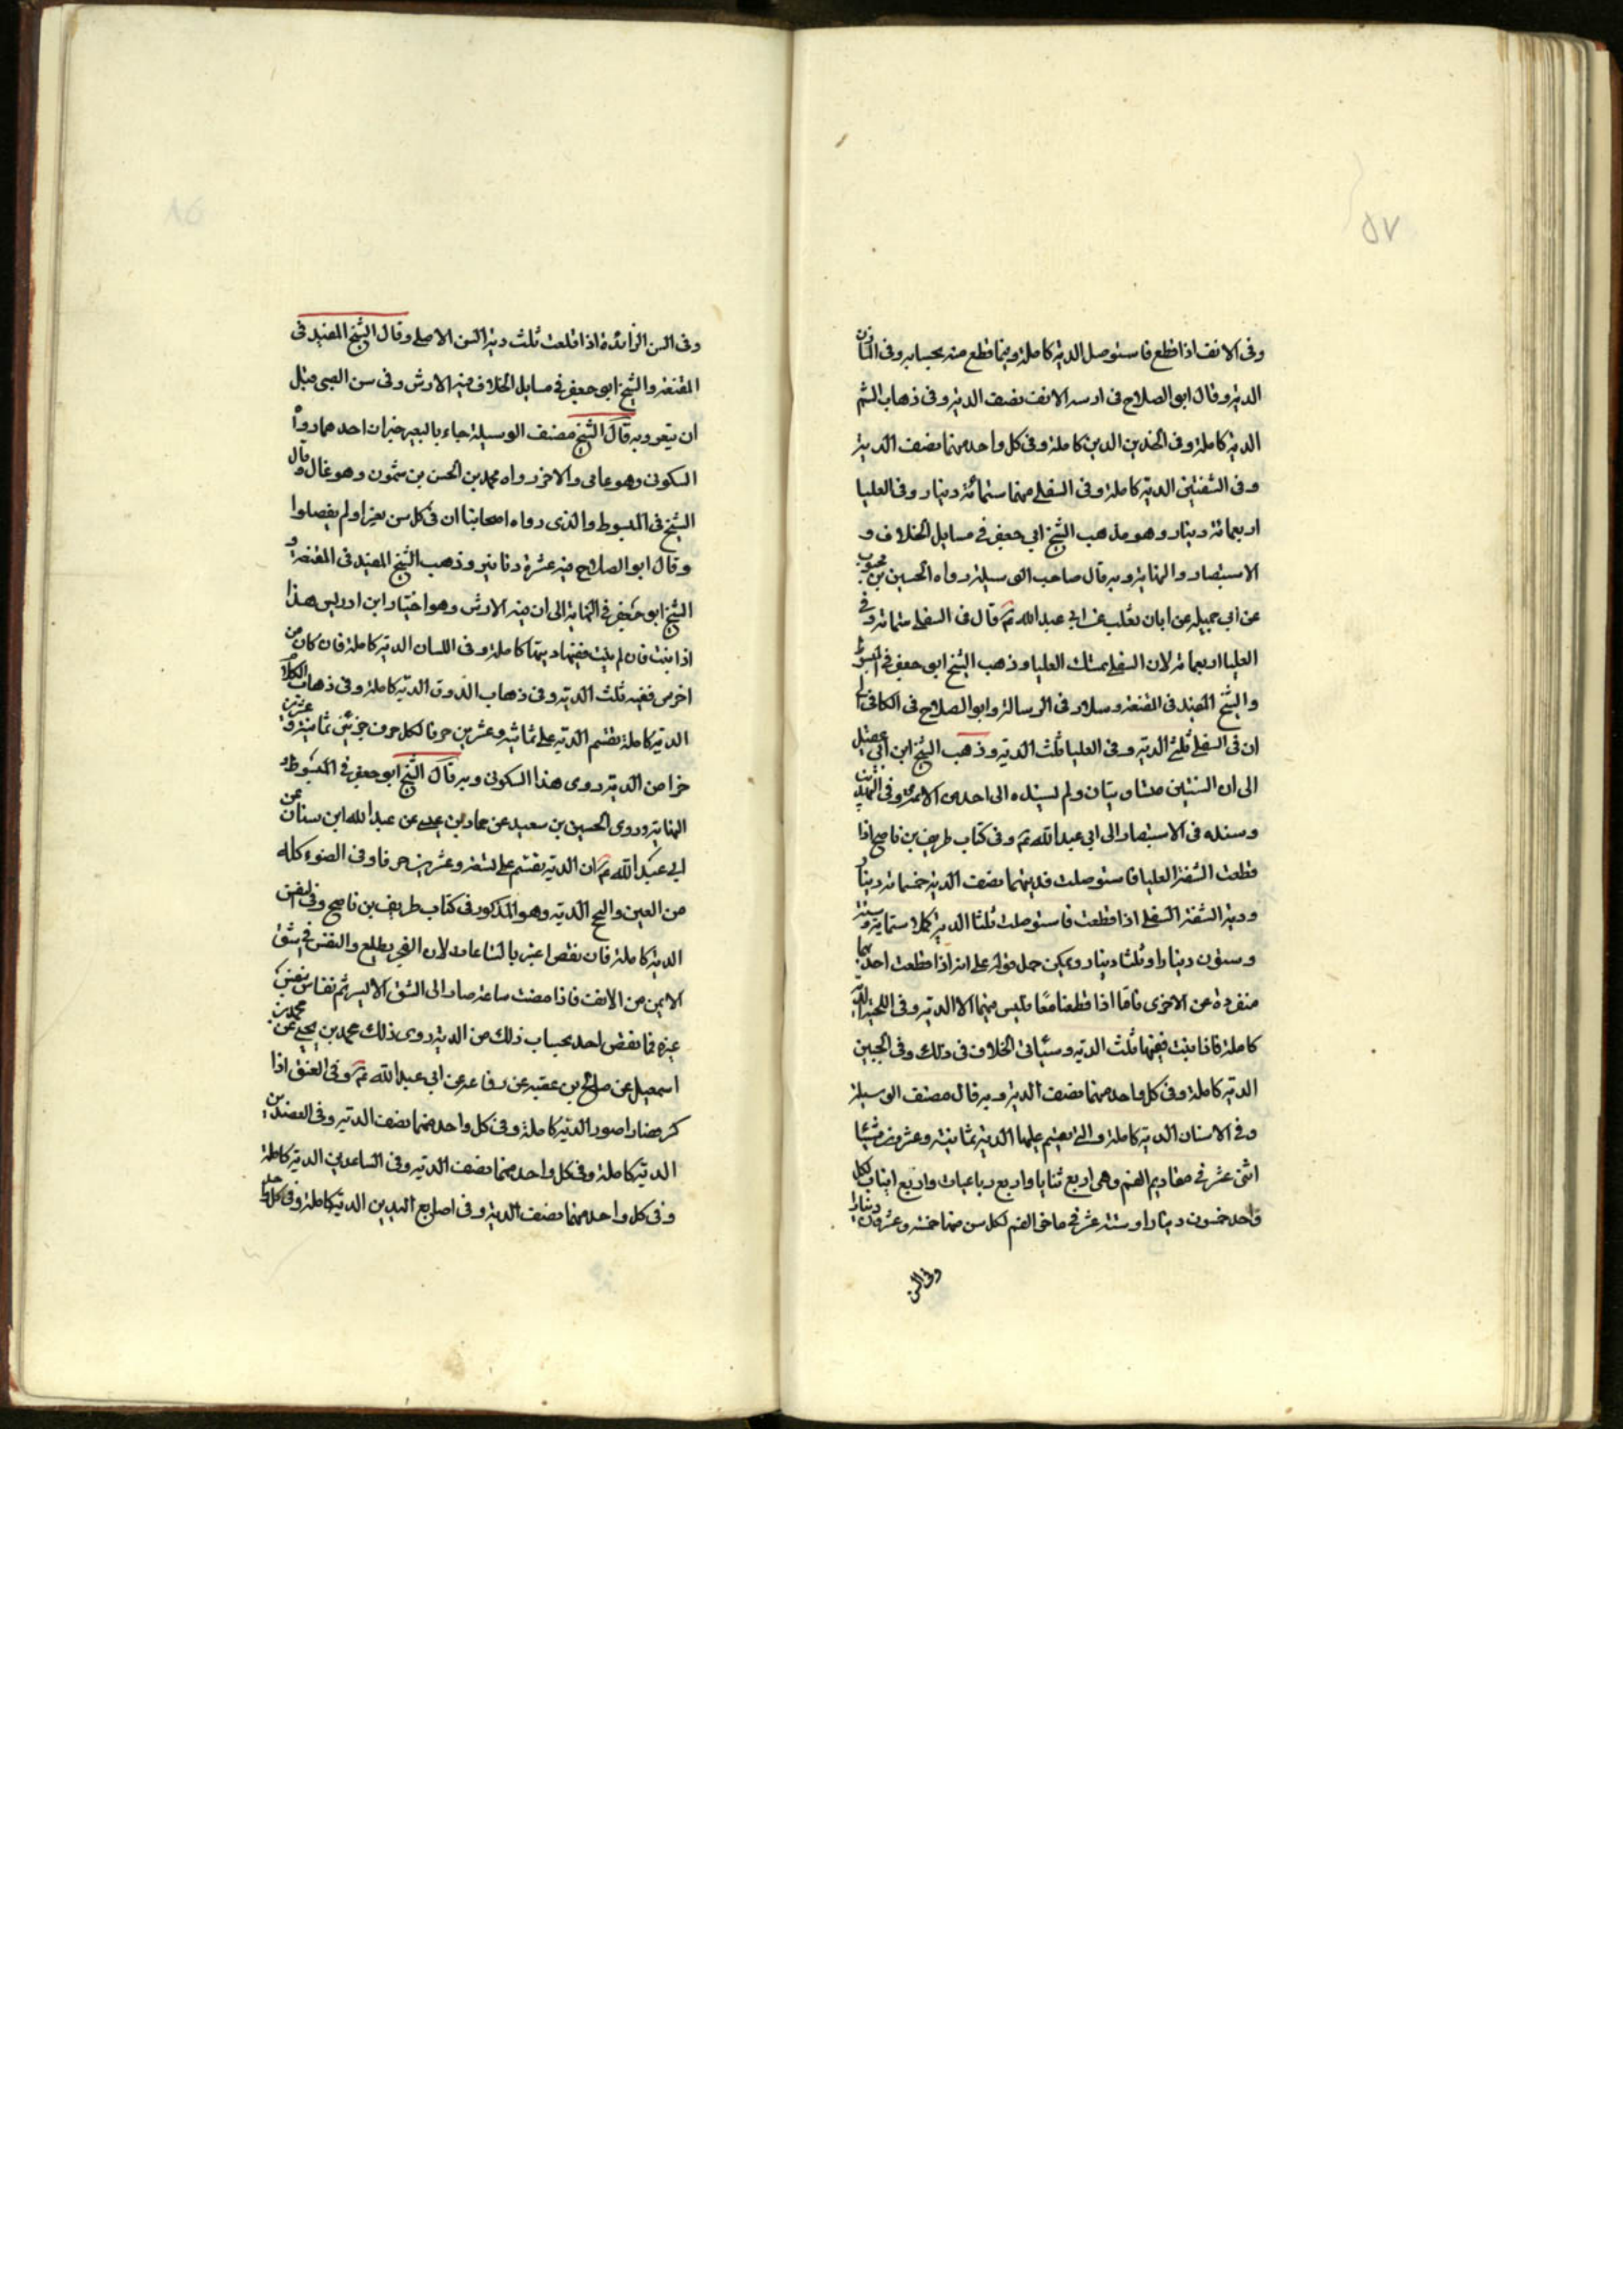 ٥٧
وفى الانف اذا قطع فاستوصل الدية كاملة وفيما قطع منه بحسابه وفى المارن
الدية وقال ابو الصلاح فى ارنبة الانف نصف الدية وفى ذهاب الشم
الدية كاملة وفى الخدين الدية كاملة وفى كل واحد منهما نصف الدية
وفى الشفتين الدية كاملة وفى السفلى منهما ستمائة دينار وفى العليا
اربعمائة دينار وهو مذهب الشيخ ابي جعفر فى مسايل الخلاف و
الاستبصار والنهاية وبه قال صاحب الوسيلة رواه الحسين بن محبوب
عن ابي جميله عن ابان تغلب عن ابي عبد الله ع قال فى السفلى ستمائة وفى
العليا اربعمائة لان السفلى تمسك العليا وذهب الشيخ ابو جعفر فى المبسوط
والشيخ المفيد فى المقنعة وسلار فى الرسالة وابو الصلاح فى الكافى الى
ان فى السفلى ثلثى الدية وفى العليا ثلث الدية وذهب الشيخ ابن ابي عقيل
الى ان الشفتين متساويتان ولم يسنده الى احد من الائمة وفى التهذيب
وسنده فى الاستبصار الى ابي عبد الله ع وفى كتاب طريف بن ناصح اذا
قطعت الشفة العليا فاستوصلت فديتها نصف الدية خمسمائة دينار
ودية الشفة السفلى اذا قطعت فاستوصلت ثلثا الدية كملا ستماية وستة
وستون دينارا وثلثا دينار ويمكن حمل قوله على انه اذا قطعت احدهما
منفردة عن الاخرى فاما اذا قطعتا معًا فليس فيهما الا الدية وفى اللحية الدية
كاملة فاذا نبتت ففيها ثلث الدية وسيأتى الخلاف فى ذلك وفى الجبين
الدية كاملة وفى كل واحد منهما نصف الدية وبه قال مصنف الوسيلة
وفى الاسنان الدية كاملة والتى تقسم عليها الدية ثمانية وعشرون سنا
اثنى عشر فى مقاديم الفم وهى اربع ثنايا واربع رباعيات واربع انياب لكل
واحد خمسون دينارا وستة عشر فى ماخر الفم لكل سن منها خمسة وعشرون دينارا
وفى السن
وفى السن الزائدة اذا قلعت ثلث دية السن الاصلى وقال الشيخ المفيد فى
المقنعة والشيخ ابو جعفر فى مسايل الخلاف فيه الارش وفى سن الصبى قبل
ان يثغر وبه قال الشيخ مصنف الوسيلة جاء بالبعير خبران احدهما رواه
السكونى وهو عامى والاخر رواه محمد بن الحسن بن شمون وهو غال وقال
الشيخ فى المبسوط والذى رواه اصحابنا ان فى كل سن بعيرا ولم يفصلوا
وقال ابو الصلاح فيه عشرة دنانير وذهب الشيخ المفيد فى المقنعة و
الشيخ ابو جعفر فى النهاية الى ان فيه الارش وهو اختيار ابن ادريس هذا
اذا نبتت فان لم ينبت ففيها ديتها كاملة وفى اللسان الدية كاملة فان كان من
اخرس ففيه ثلث الدية وفى ذهاب الذوق الدية كاملة وفى ذهاب الكلام
الدية كاملة تقسم الدية على ثمانية وعشرين حرفا لكل حرف جزء من ثمانية وعشرين
جزا من الدية روى هذا السكونى وبه قال الشيخ ابو جعفر فى المبسوط و
النهاية وروى الحسين بن سعيد عن حماد بن عيسى عن عبد الله ابن سنان عن
ابى عبد الله ع ان الدية تقسم على تسعة وعشرين حرفا وفى الضوء كله
من العين الدية وهو المذكور فى كتاب طريف بن ناصح وفى النفس
الدية كاملة فان نقص اعتبر بالساعات لان الفجر يطلع والنفس فى الشق
الايمن من الانف فاذا مضت ساعة صار الى الشق الايسر ثم تقاس بنفس
غيره فما نقص اخذ بحساب ذلك من الدية روى ذلك محمد بن يحيى عن محمد بن
اسمعيل عن صالح بن عقبه عن رفاعه عن ابي عبد الله ع وفى العنق اذا
كسر فصار اصور الدية كاملة وفى كل واحد منهما نصف الدية وفى العضدين
الدية كاملة وفى كل واحد منهما نصف الدية وفى الساعدين الدية كاملة
وفى كل واحد منهما نصف الدية وفى اصابع اليدين الدية كاملة وفى كل واحد